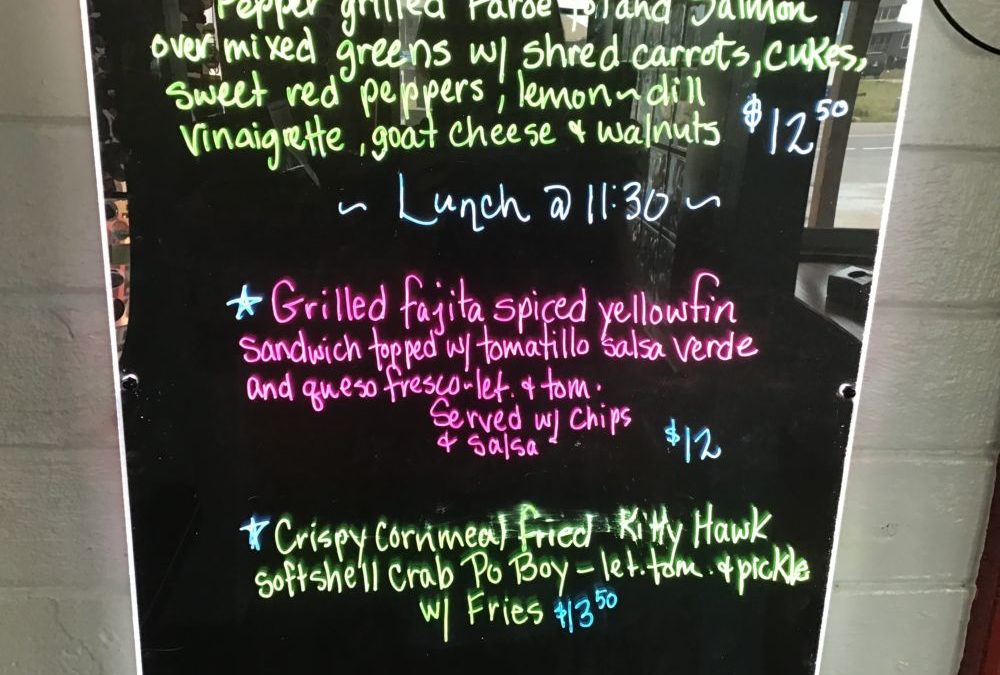 Pepper grilled Faroe Island Salmon
over mixed greens w/ shred carrots, cukes,
sweet red peppers, lemon~dill
vinaigrette, goat cheese & walnuts $12.50
~ Lunch @ 11:30 ~
☆ Grilled fajita spiced yellowfin
sandwich topped w/ tomatillo salsa verde
and queso fresco-let. & tom.
Served w/ chips
& salsa $12
☆ Crispy Cornmeal fried Kitty Hawk
softshell Crab Po Boy - let. tom. & pickle
w/ Fries $13.50